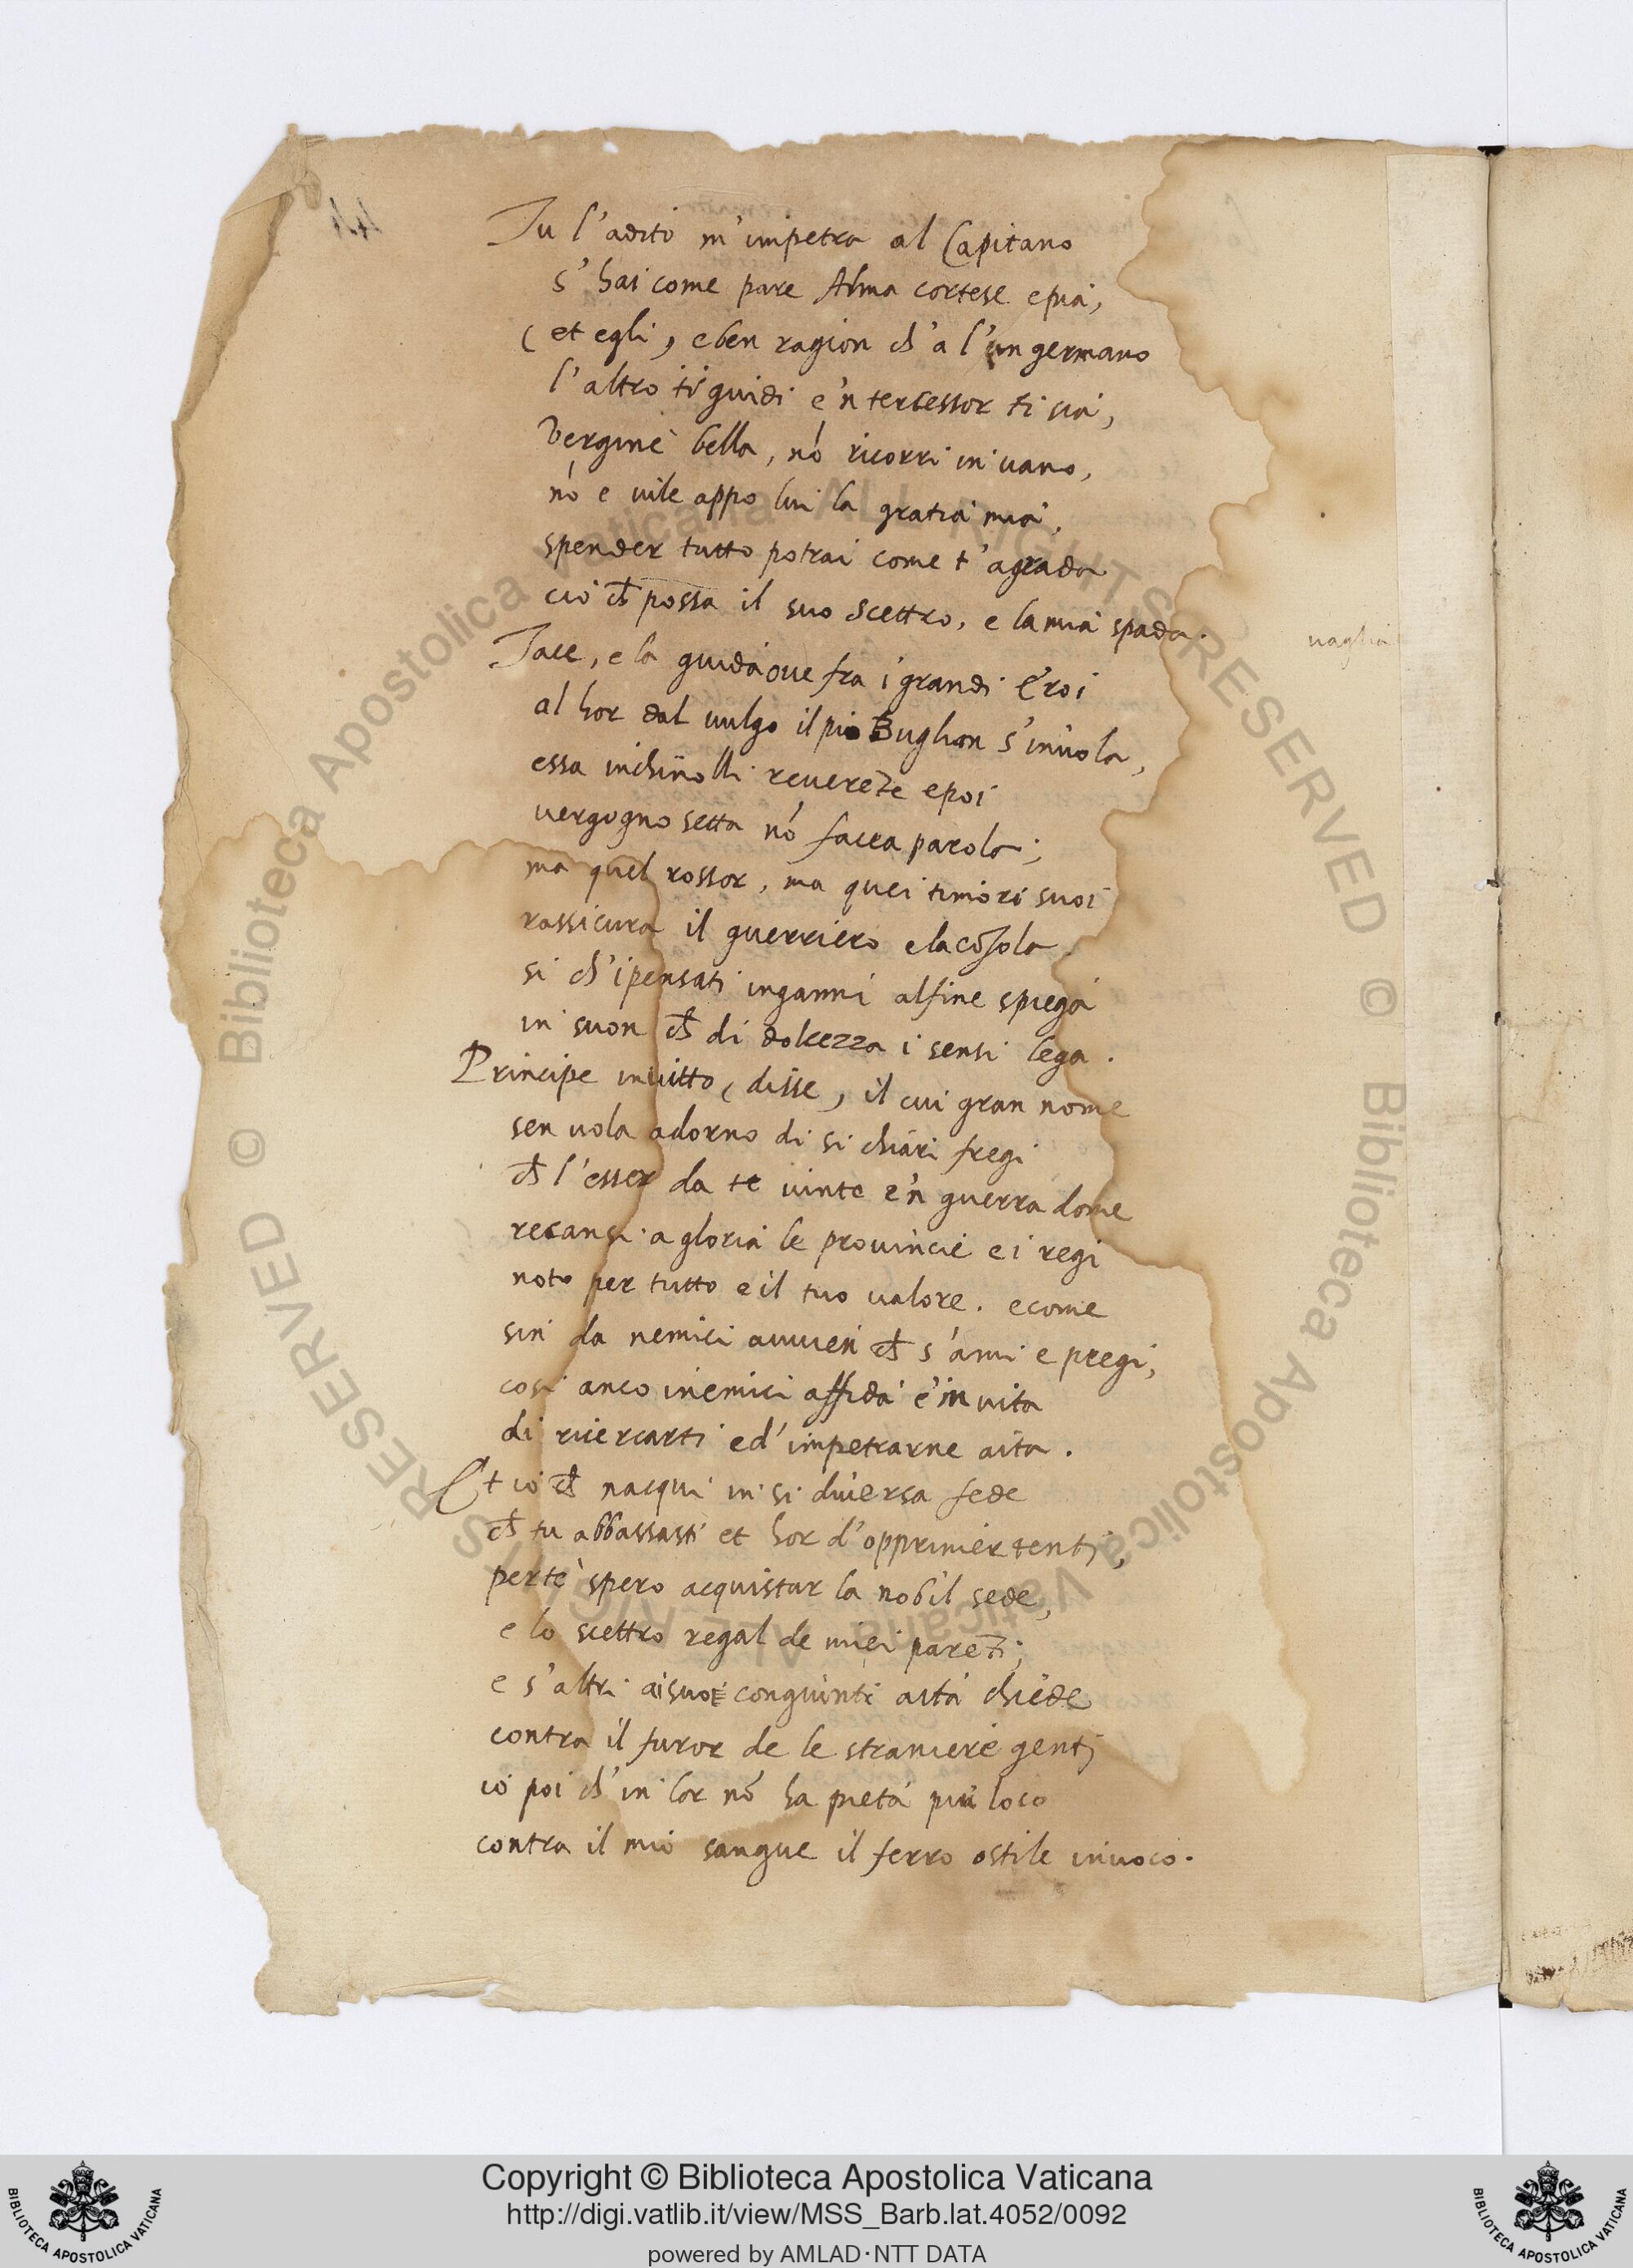 Tu l'adito m'impetra al Capitano
s'hai come pare Alma cortese e pia,
( et egli, e ben ragion ch'a l'un germano
l'altro ti guidi e'n tercessor ti sia,
Vergine bella, nõ ricorri in uano,
nõ e uile appo lui la gratia mia,
spender tutto potrai come t'agrada
cio ch̃ possa il suo scettro, e la mia spada.
uaglia
Tace, e la guida oue fra i grandi Eroi
al hor dal uulgo il pio Buglion s'inuola,
essa inchinolli reuerẽte e poi
uergognosetta nõ facea parola;
ma quel rossor, ma quei timori suoi
rassicura il guerriero e la cõsola
si ch'i pensati inganni alfine spiega
in suon ch̃ di dolcezza i sensi lega.
Principe inuitto, disse, il cui gran nome
sen uola adorno di si chiari fregi
ch̃ l'esser da te uinte e'n guerra dome
recansi a gloria le prouincie e i regi
noto per tutto e il tuo ualore. e come
sin da nemici auuien ch̃ s'ami e pregi,
cosi anco i nemici affida e inuita
di ricercarti ed'impetrarne aita.
Et io ch̃ nacqui in si diuersa fede
ch̃ tu abbassasti et hor d'opprimer tenti,
per te spero acquistar la nobil sede,
e lo scettro regal de miei parẽti;
e s'altri ai suoi congiunti aita chiede
contra il furor de le straniere genti
io poi ch'in lor nõ ha pietà più loco
contra il mio sangue il ferro ostile inuoco.
44
Copyright © Biblioteca Apostolica Vaticana
http://digi.vatlib.it/view/MSS_Barb.lat.4052/0092
powered by AMLAD·NTT DATA
BIBLIOTECA APOSTOLICA VATICANA
BIBLIOTECA APOSTOLICA VATICANA
Biblioteca Apostolica Vaticana ALL RIGHTS RESERVED ©
Biblioteca Apostolica Vaticana ALL RIGHTS RESERVED ©